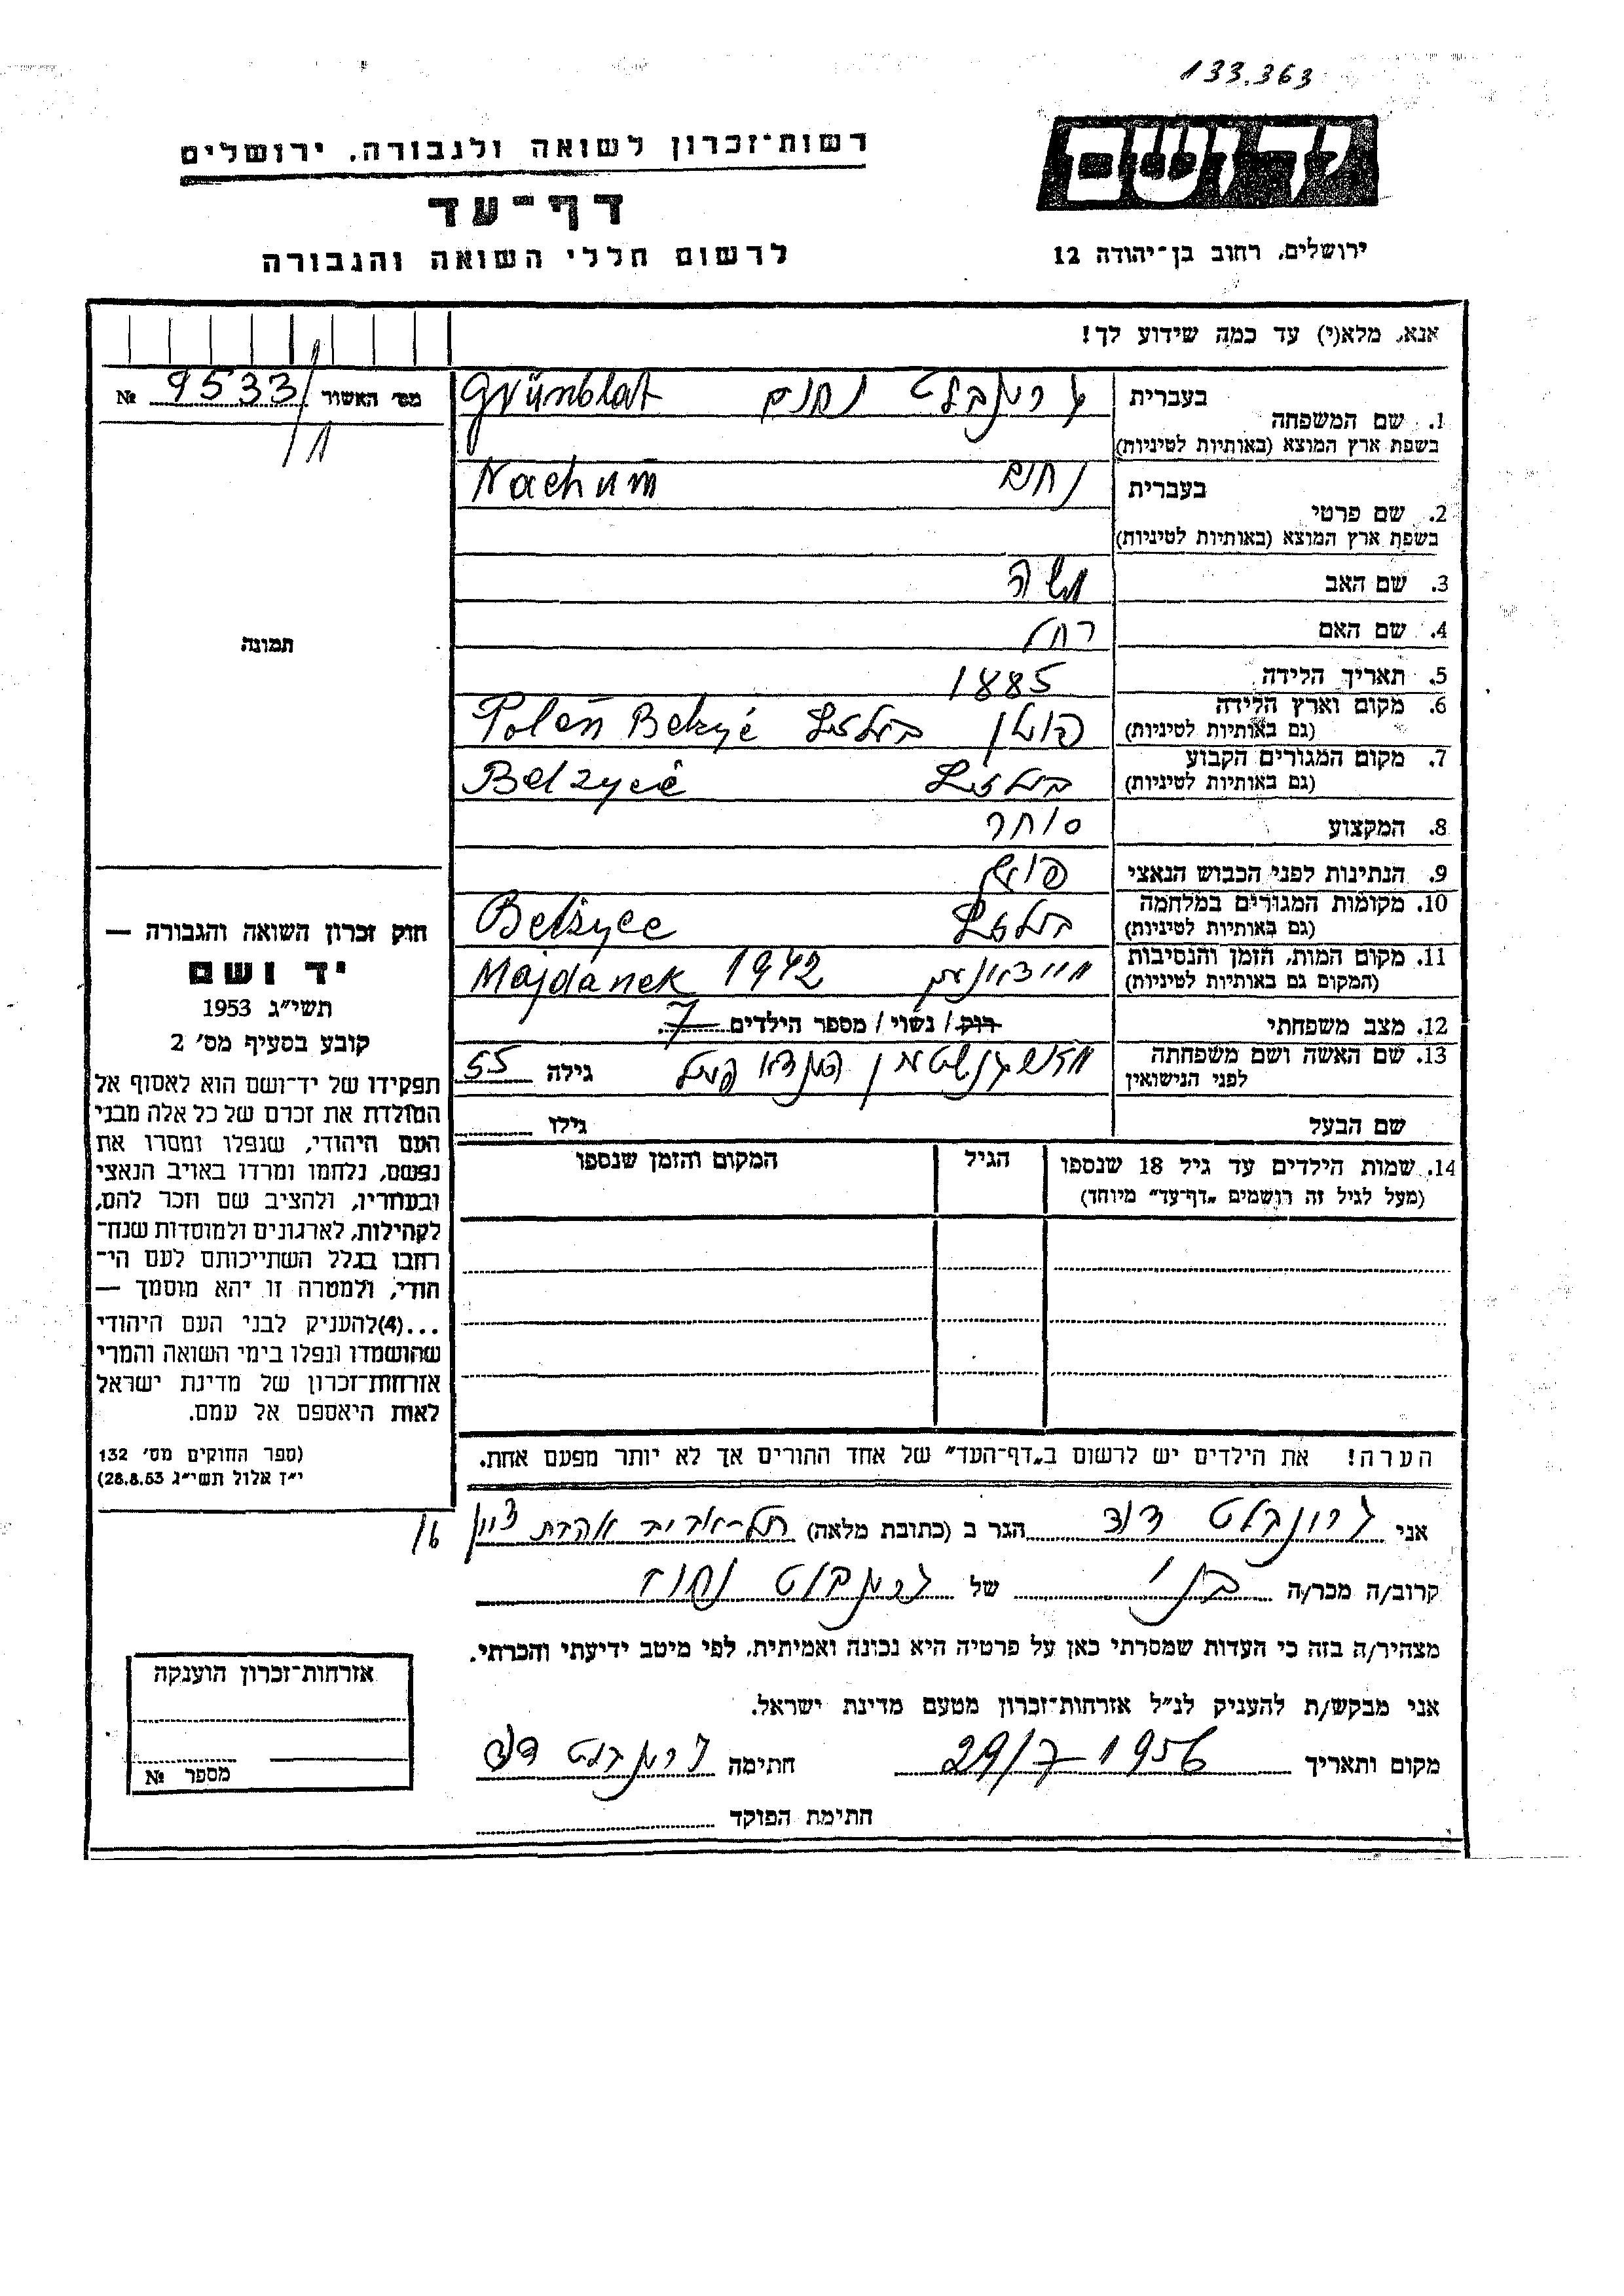 133.363
יד ושם
רשות־זכרון לשואה ולגבורה, ירושלים
דף־עד
לרשום חללי השואה והגבורה
ירושלים, רחוב בן־יהודה 12
אנא, מלא(י) עד כמה שידוע לך!
מס׳ האשור 9533/ №
1. שם המשפחה
בעברית גרינבלט נחום Grünblat
בשפת ארץ המוצא (באותיות לטיניות)
2. שם פרטי
בעברית נחום Nachum
בשפת ארץ המוצא (באותיות לטיניות)
3. שם האב משה
4. שם האם רחל
תמונה
5. תאריך הלידה 1885
6. מקום וארץ הלידה פולין
(גם באותיות לטיניות) Polen
7. מקום המגורים הקבוע
(גם באותיות לטיניות) Belzyce
8. המקצוע סוחר
9. הנתינות לפני הכבוש הנאצי
10. מקומות המגורים במלחמה
(גם באותיות לטיניות) Belzyce
11. מקום המות, הזמן והנסיבות
(המקום גם באותיות לטיניות) Majdanek 1942
12. מצב משפחתי רוק / נשוי / מספר הילדים 7
13. שם האשה ושם משפחתה
לפני הנישואין גילה 55
שם הבעל גילו
14. שמות הילדים עד גיל 18 שנספו
(מעל לגיל זה רושמים „דף־עד״ מיוחד)
הגיל
המקום והזמן שנספו
חוק זכרון השואה והגבורה —
יד ושם
תשי״ג 1953
קובע בסעיף מס׳ 2
תפקידו של יד־ושם הוא לאסוף אל
המולדת את זכרם של כל אלה מבני
העם היהודי, שנפלו ומסרו את
נפשם, נלחמו ומרדו באויב הנאצי
ובעוזריו, ולהציב שם וזכר להם,
לקהילות, לארגונים ולמוסדות שנח־
רחבו בגלל השתייכותם לעם הי־
הודי, ולמטרה זו יהא מוסמך —
...(4)להעניק לבני העם היהודי
שהושמדו ונפלו בימי השואה והמרי
אזרחות־זכרון של מדינת ישראל
לאות היאספם אל עמם.
(ספר החוקים מס׳ 132
י״ז אלול תשי״ג 28.8.53)
הערה! את הילדים יש לרשום ב„דף־העד״ של אחד ההורים אך לא יותר מפעם אחת.
אני גרונבלט דוד הגר ב (כתובת מלאה) תל־אביב אהבת ציון 16
קרוב/ה מכר/ה של גרינבלט נחום
מצהיר/ה בזה כי העדות שמסרתי כאן על פרטיה היא נכונה ואמיתית, לפי מיטב ידיעתי והכרתי.
אני מבקש/ת להעניק לנ״ל אזרחות־זכרון מטעם מדינת ישראל.
מקום ותאריך 29/7 1956 חתימה גרינבלט דוד
חתימת הפוקד
אזרחות־זכרון הוענקה
מספר №